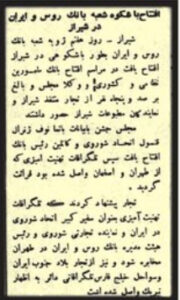 افتتاح با شکوه شعبه بانک روس و ایران
در شیراز
شیراز - روز هفتم ژویه شعبه بانک
روس و ایران بطور باشکوهی در شیراز
افتتاح یافت در مراسم افتتاح بانک مامورین
نظامی و کشوری و وکلا مجلس و بالغ
بر صد و پنجاه نفر از تجار متنفذ شیراز و
نمایندگان مطبوعات شیراز حضور داشتند
مجلس جشن با بیانات تاشا نوف ژنرال
قنسول اتحاد شوروی و کاتلین رئیس بانک
افتتاح یافت سپس تلگرافات تهنیت آمیزی که
از طهران و اصفهان واصل شده بود قرائت
گردید .
تجار پیشنهاد کردند که تلگرافات
تهنیت آمیزی بعنوان سفیر کبیر اتحاد شوروی
در ایران و نماینده تجارتی شوروی و رئیس
هیئت مدیره بانک روس و ایران در طهران
مخابره شود و نیز از تجار بلاد جنوب ایران
وسواحل خلیج فارس تلگرافاتی دائر به اظهار
تبریک واصل شده است